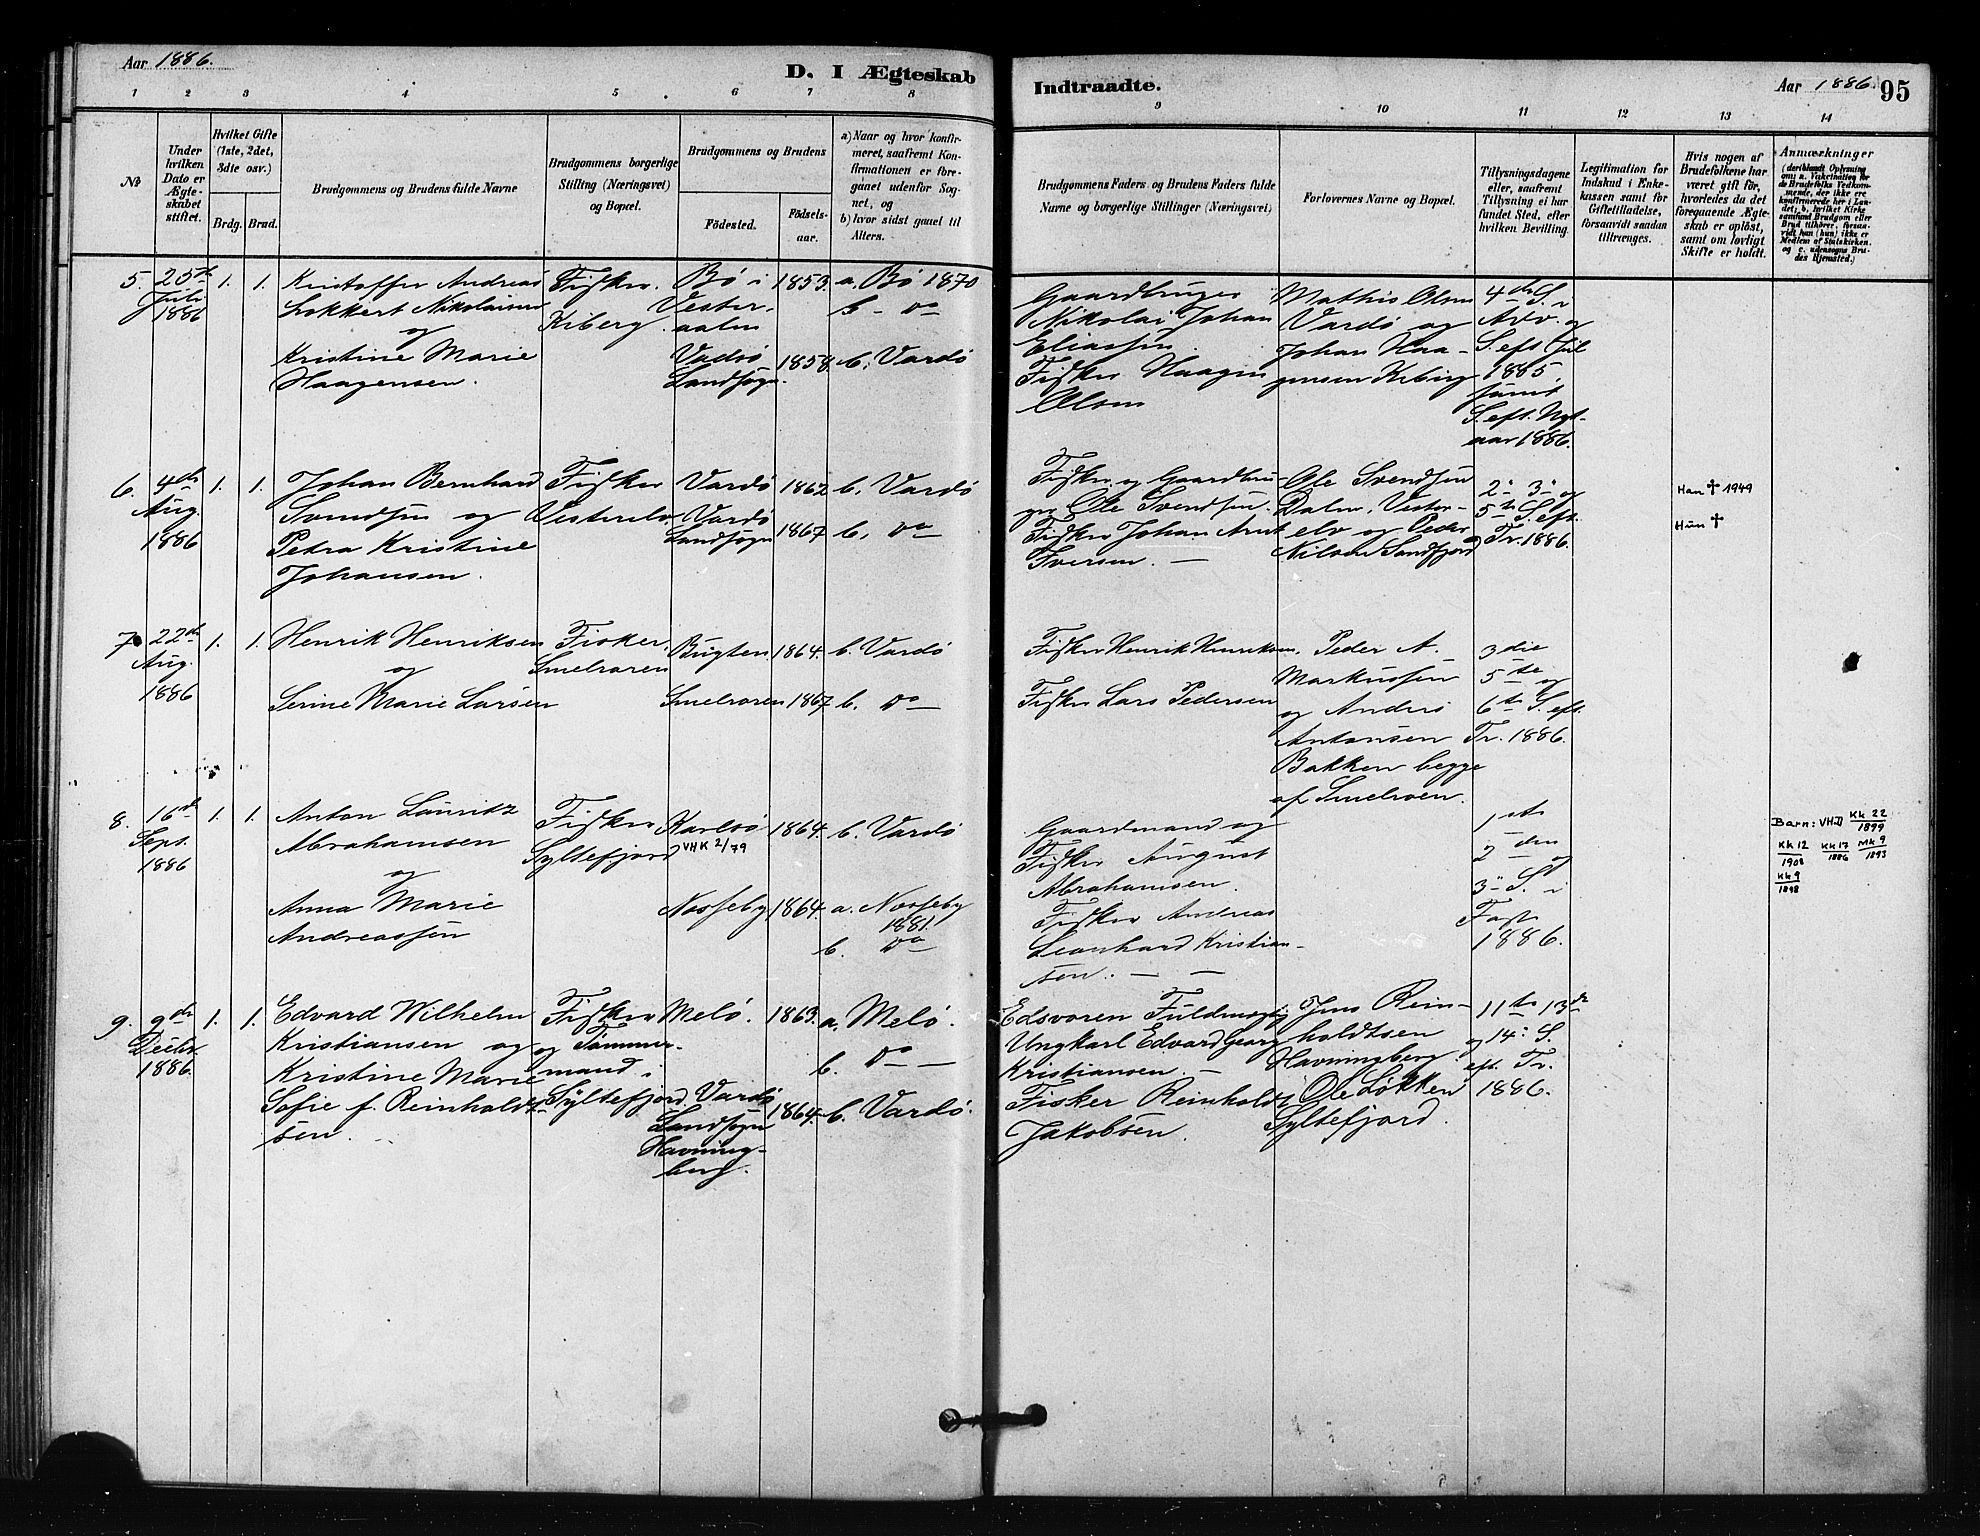 Aar 1886.
D. I Ægteskab
1 2 3 4 5 6 7 8
№
Under hvilken Dato er Ægteskabet stiftet.
Hvilket Gifte (1ste, 2det, 3die osv.)
Brdg. Brud.
Brudgommens og Brudens fulde Navne
Brudgommens borgerlige Stilling (Næringsvei) og Bopæl.
Brudgommens og Brudens
Fødested. Fødselsaar.
a) Naar og hvor konfirmeret, saafremt Konfirmationen er foregaaet udenfor Sognet, og
b) hvor sidst gaaet til Alters.
5. 25de Juli 1886
1. 1.
Kristoffer Andreas
Lokkert Nikolaisen
og
Kristine Marie
Haagensen.
Fisker.
Kiberg.
Bø i
Vester-
aalen
1853.
a. Bø 1870
b. Do
Vadsö
Landsogn.
1858.
b. Vardö
6. 4de Aug. 1886
1. 1.
Johan Bernhard
Svendsen og
Petra Kristine
Johansen.
Fisker
Vesterelv.
Vardö 1862 b. Vardö
Vardö
Landsogn 1867 b. Do
7. 22de Aug. 1886
1. 1.
Henrik Henriksen
og
Serine Marie Larsen
Fisker.
Smelroren
Bugten. 1864. b. Vardö
Smelroren 1867 b. Do
8. 16de Sept. 1886
1. 1.
Anton Lauritz
Abrahamsen
og
Anna Marie
Andreassen
Fisker
Syltefjord
Karlsö 1864. b. Vardö
VHK 2/79
Nesseby 1864. a. Nesseby
1881.
b. Do
9. 9de Decbr. 1886.
1. 1.
Edvard Wilhelm
Kristiansen og
Kristine Marie
Sofie f. Reinholdt-
sen.
Fisker
og Tømmer-
mand i
Syltefjord
Melö. 1863. a. Melö.
b. Do
Vardö
Landsogn
Havning-
berg.
1864. b. Vardö.
Indtraadte.
Aar 1886. 95
9 10 11 12 13 14
Brudgommens Faders og Brudens Faders fulde Navne og borgerlige Stillinger (Næringsvei)
Forlovernes Navne og Bopæl.
Tillysningsdagene eller, saafremt Tillysning ei har fundet Sted, efter hvilken Bevilling.
Legitimation for Indskud i Enkekassen samt for Giftetilladelse, forsaavidt saadan tiltrænges.
Hvis nogen af Brudefolkene har været gift før, hvorledes da det foregaaende Ægteskab er opløst, samt om lovligt Skifte er holdt.
Anmærkninger
(deriblandt Oplysning om: a. Vakcination for de Brudefolks Vedkommende, der ikke ere konfirmerede her i Landet; b. hvilket Kirkesamfund Brudgom eller Brud tilhører, forsaavidt han (hun) ikke er Medlem af Statskirken, og c. udensogns Brudes Hjemsted.)
Gaardbruger
Nikolai Johan
Eliassen.
Fisker Haagen
Olsen
Mathis Olsen
Vardö og
Johan Haa-
gensen Kiberg
4de S. i
Adv. og
S. eft. Jul
1885,
samt
S. eft. Nyt-
aar 1886.
Fisker og Gaardbru-
ger Ole Svendsen.
Fisker Johan Arnt
Iversen.
Ole Svendsen
Dalm, Vester-
elv og Peder
Nilsen Sandfjord
2. 3. og
5te S. eft.
Tr. 1886.
Han ✝ 1949
Hun ✝
Fisker Henrik Henriksen.
Fisker Lars Pedersen
Peder A.
Markussen
og Anders
Antonsen
Bakken begge
af Smelroen.
3die
5te og
6te S. eft.
Tr. 1886.
Gaardmand og
Fisker August
Abrahamsen.
Fisker Andreas
Leonhard Kristian-
sen.
1ste
2den og
3. S. i
Faste
1886.
Barn: VHD Kk 22/1899
Kk 12/1908 Kk 17/1886 Mk 9/1893
Kk 9/1898
Edsvoren Fuldmægtig
Ungkarl Edvard Georg
Kristiansen.
Fisker Reinholdt
Jakobsen.
Jens Rein-
holdtsen
Havningberg
Ole Løkken
Syltefjord.
11te 13de
og 14. S.
eft. Tr.
1886.